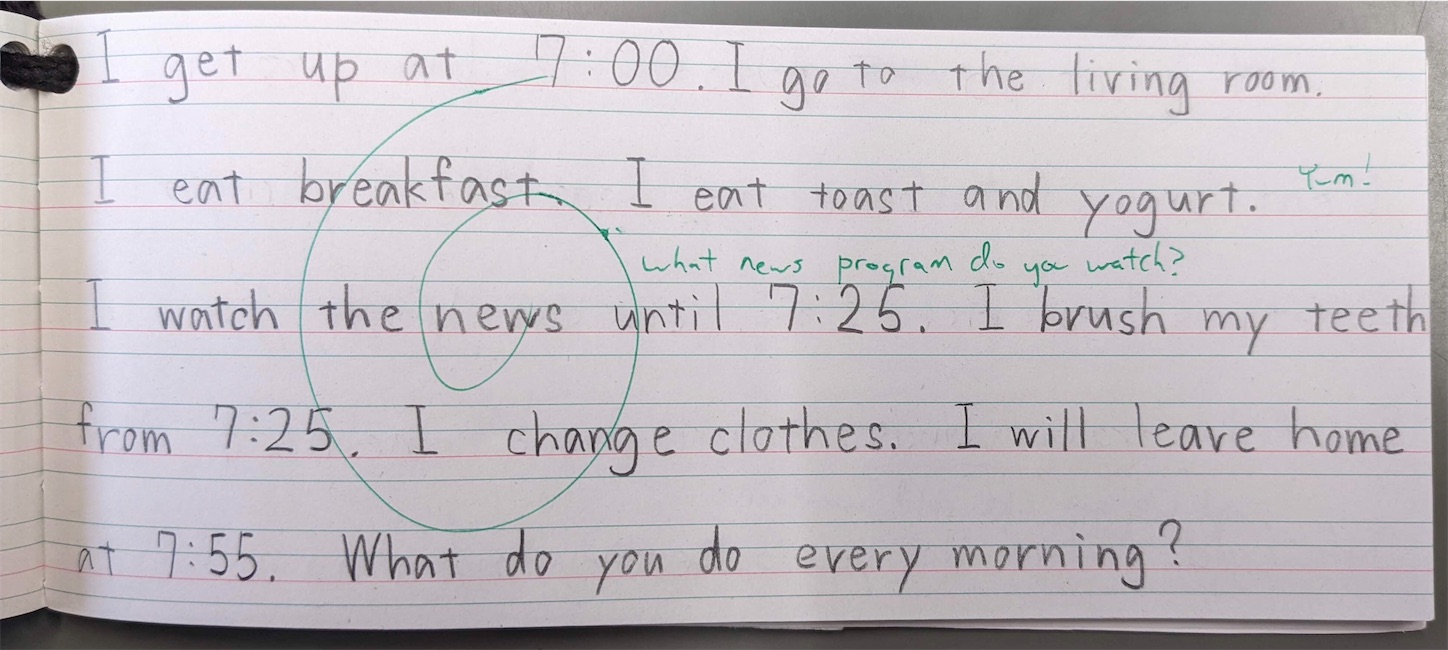 I get up at 7:00. I go to the living room.
I eat breakfast. I eat toast and yogurt. Yum!
What news program do you watch?
I watch the news until 7:25. I brush my teeth
from 7:25. I change clothes. I will leave home
at 7:55. What do you do every morning?